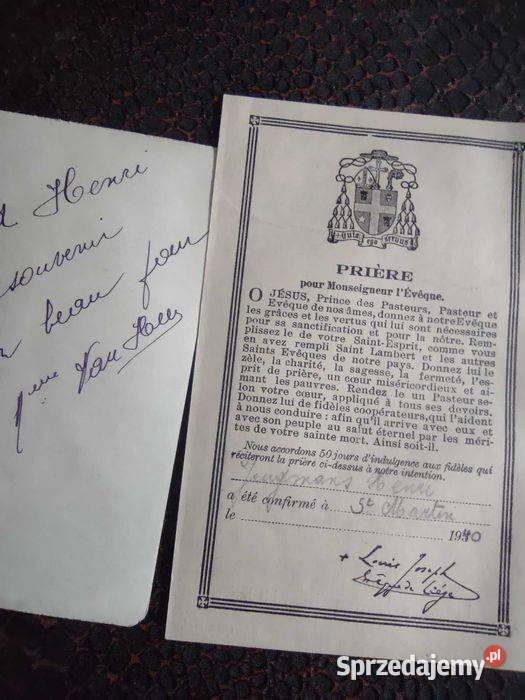 Henri
souvenir
beau jour
Mme Van
quia ego servus
PRIÈRE
pour Monseigneur l'Évêque.
O JÉSUS, Prince des Pasteurs, Pasteur et
Evêque de nos âmes, donnez à notre Evêque
les grâces et les vertus qui lui sont nécessaires
pour sa sanctification et pour la nôtre. Rem-
plissez le de votre Saint-Esprit, comme vous
en avez rempli Saint Lambert et les autres
Saints Evêques de notre pays. Donnez lui le
zèle, la charité, la sagesse, la fermeté, l'es-
prit de prière, un cœur miséricordieux et ai-
mant les pauvres. Rendez le un Pasteur se-
lon votre cœur, appliqué à tous ses devoirs.
Donnez lui de fidèles coopérateurs, qui l'aident
à nous conduire : afin qu'il arrive avec eux et
avec son peuple au salut éternel par les méri-
tes de votre sainte mort. Ainsi soit-il.
Nous accordons 50 jours d'indulgence aux fidèles qui
réciteront la prière ci-dessus à notre intention.
Henri
a été confirmé à St Martin
le 1940
+ Louis Joseph
Evêque de Liége
Sprzedajemy.pl